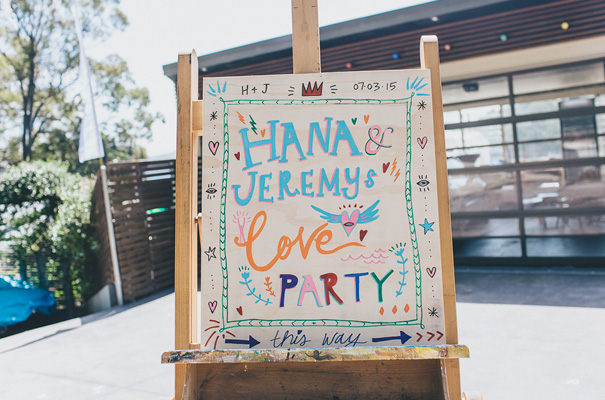 H + J 07·03·15
HANA &
JEREMYS
love
PARTY
this way